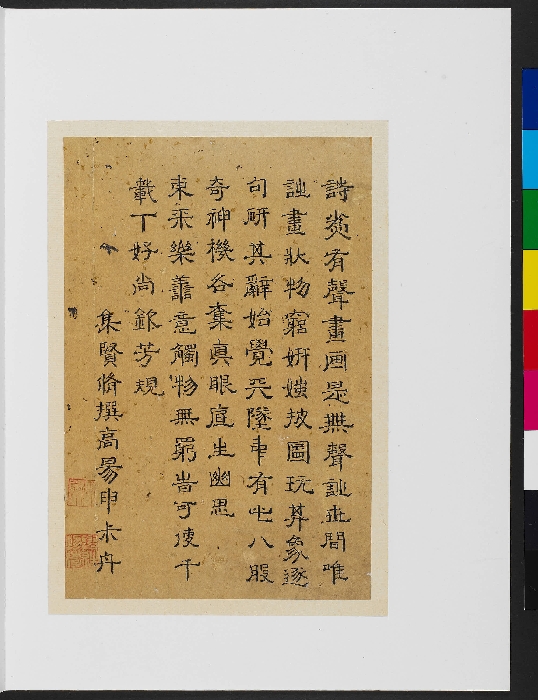 詩為有聲畫画是無聲詩世間唯
詩畫狀物窮妍媸披圖玩其象逐
句研其辭始覺天隧中有七八股
奇神機各棄真眼直生幽思
東来樂善意觸物無窮皆可使千
載丅好尚欽芳規
集賢脩撰高昜申木丹